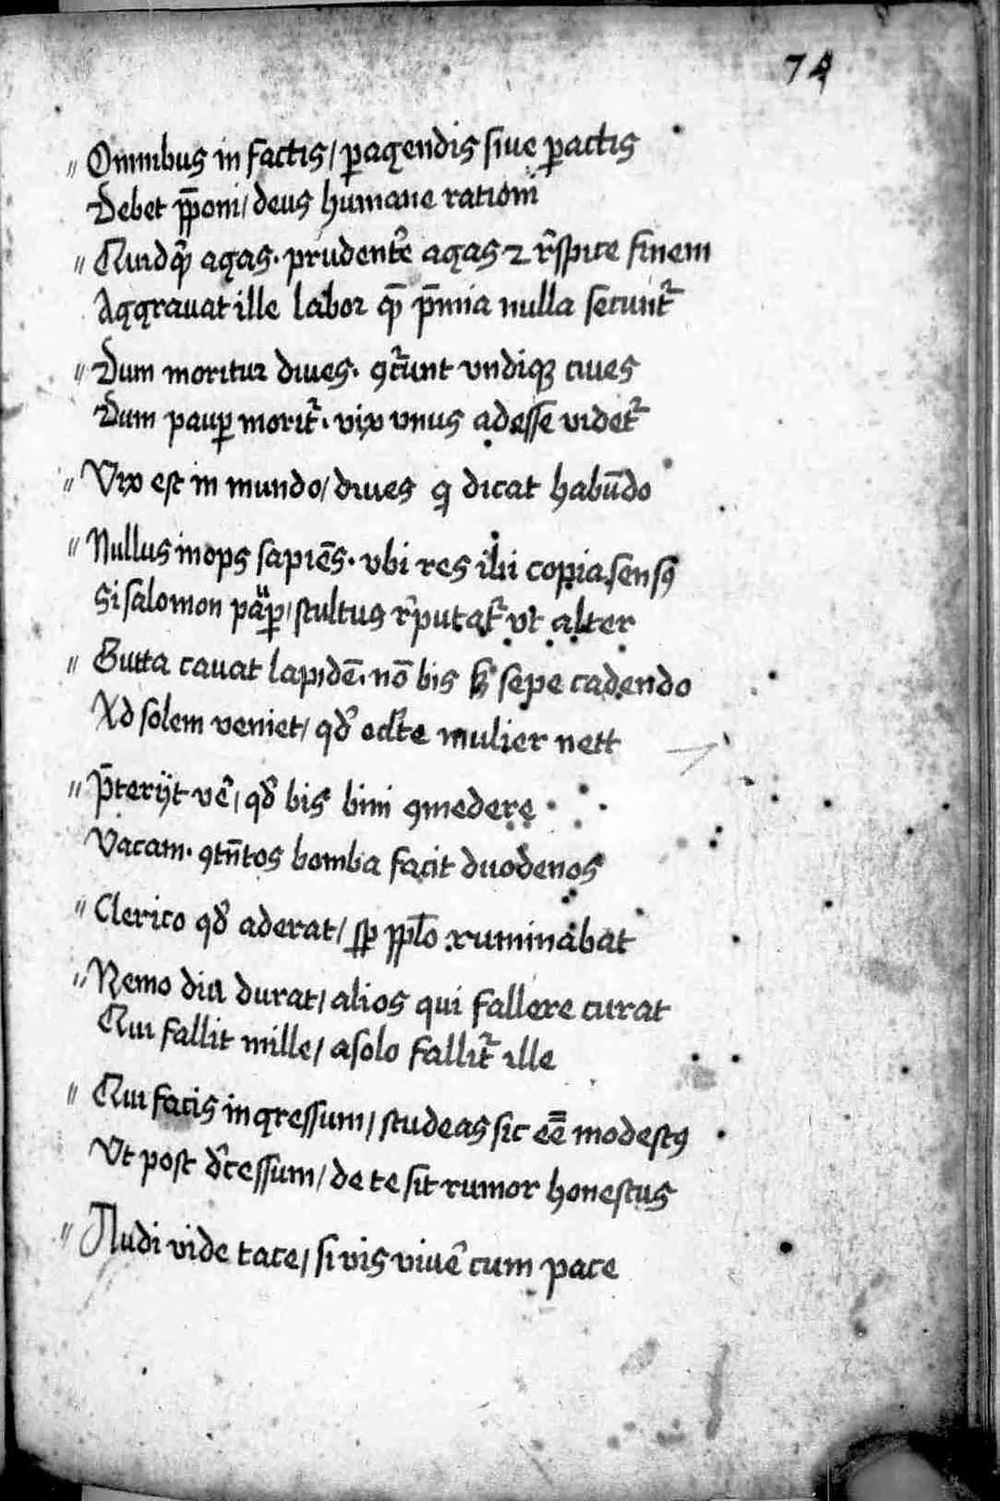 74
〃 Omnibus in factis / ꝑagendis siue ꝑactis
Debet p̄poni / deus humane rationi
〃 Quidq̄ agas · prudent̄e agas ⁊ r̄spice finem
Aggrauat ille labor q̄ p̄mia nulla secunt᷑
〃 Dum moritur diues · ꝯcr̄unt vndiqꝫ ciues
Dum pauꝑ morit᷑ · vix vnus adesse videt᷑
〃 Vix est in mundo / diues q̇ dicat habūdo
〃 Nullus inops sapiēs · vbi res ibi copia sensꝰ
Si salomon pauꝑ / stultus r̄putat᷑ vt alter
〃 Gutta cauat lapidē · nō bis sꝫ sepe cadendo
Ad solem veniet / qd̛ mulier nett
〃 p̄terijt vē / qd̛ bis bini ꝯmedere
Vacam · ꝯtn̄tos bomba facit duodenos
〃 Clerico qd̛ aderat / sꝑ pp̄lo ruminabat
〃 Nemo diu durat / alios qui fallere curat
Qui fallit mille / asolo fallit᷑ ille
〃 Qui facis ingressum / studeas sic ēē modestꝰ
Vt post d̄cessum / de te sit rumor honestus
〃 Audi vide tace / si vis viuē cum pace